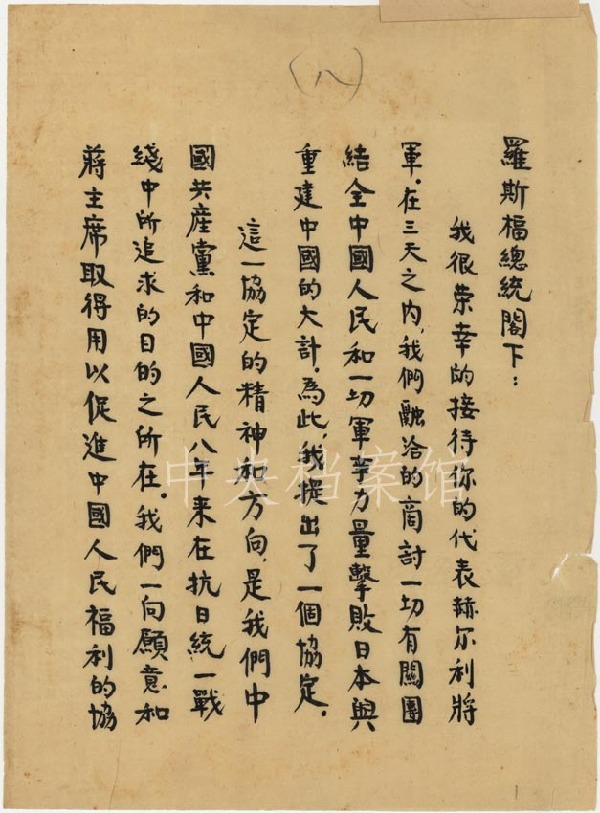 (八)
羅斯福總統閣下：
我很荣幸的接待你的代表赫尔利將
軍。在三天之内，我們融洽的商討一切有關團
結全中國人民和一切軍事力量擊敗日本與
重建中國的大計。為此，我提出了一個協定。
這一協定的精神和方向，是我們中
國共産黨和中國人民八年来在抗日統一戰
綫中所追求的目的之所在。我們一向願意和
蔣主席取得用以促進中國人民福利的協
中央档案馆